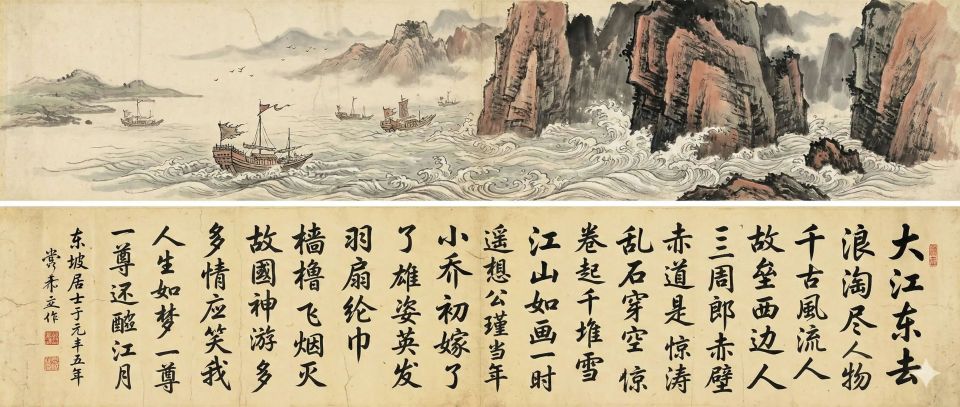 大江东去
浪淘尽人物
千古風流人
故垒西边人
三周郎赤壁
赤道是惊涛
乱石穿空惊
卷起千堆雪
江山如画一时
遥想公瑾当年
小乔初嫁了
了雄姿英发
羽扇纶巾
樯橹飞烟灭
故國神游多
多情应笑我
人生如梦一尊
一尊还酹江月
东坡居士于元丰五年
作